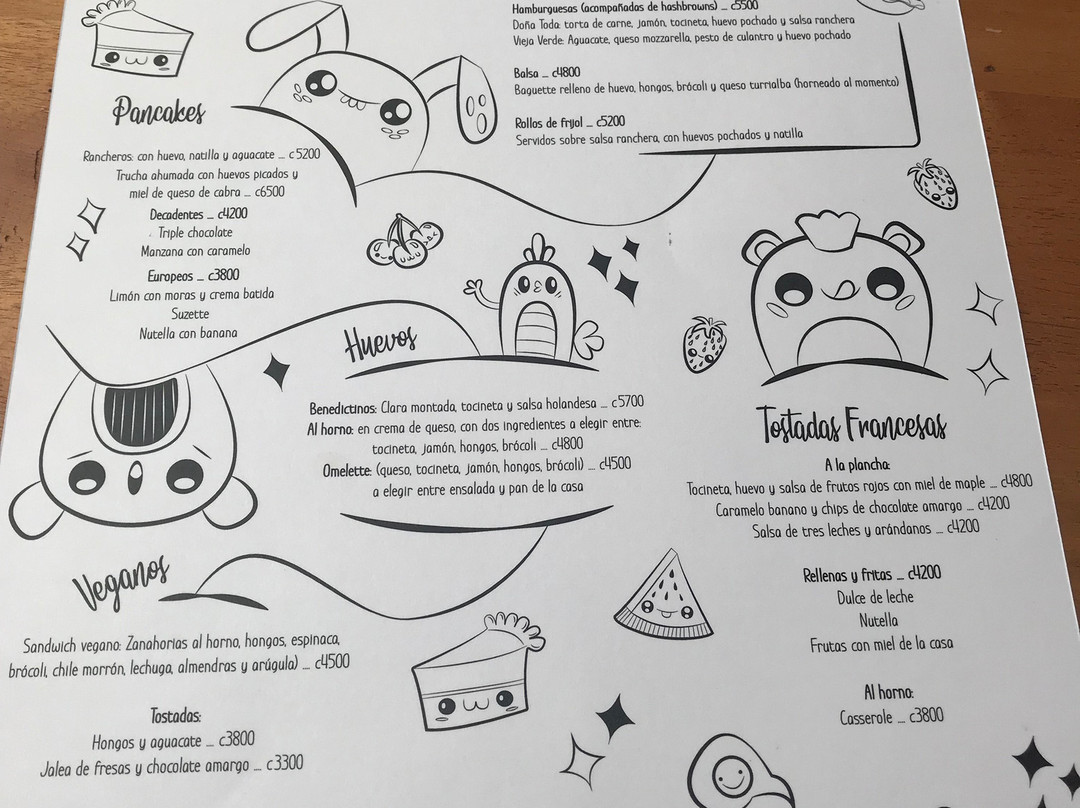 Hamburguesas (acompañadas de hashbrowns) _ c5500
Doña Toda: torta de carne, jamón, tocineta, huevo pochado y salsa ranchera
Vieja Verde: Aguacate, queso mozzarella, pesto de culantro y huevo pochado
Balsa _ c4800
Baguette relleno de huevo, hongos, brócoli y queso turrialba (horneado al momento)
Rollos de frijol _ c5200
Servidos sobre salsa ranchera, con huevos pochados y natilla
Pancakes
Rancheros: con huevo, natilla y aguacate _ c5200
Trucha ahumada con huevos picados y
miel de queso de cabra _ c6500
Decadentes _ c4200
Triple chocolate
Manzana con caramelo
Europeos _ c3800
Limón con moras y crema batida
Suzette
Nutella con banana
Huevos
Benedictinos: Clara montada, tocineta y salsa holandesa _ c5700
Al horno: en crema de queso, con dos ingredientes a elegir entre:
tocineta, jamón, hongos, brócoli _ c4800
Omelette: (queso, tocineta, jamón, hongos, brócoli) _ c4500
a elegir entre ensalada y pan de la casa
Tostadas Francesas
A la plancha:
Tocineta, huevo y salsa de frutos rojos con miel de maple _ c4800
Caramelo banano y chips de chocolate amargo _ c4200
Salsa de tres leches y arándanos _ c4200
Rellenas y fritas _ c4200
Dulce de leche
Nutella
Frutas con miel de la casa
Al horno:
Casserole _ c3800
Veganos
Sandwich vegano: Zanahorias al horno, hongos, espinaca,
brócoli, chile morrón, lechuga, almendras y arúgula) _ c4500
Tostadas:
Hongos y aguacate _ c3800
Jalea de fresas y chocolate amargo _ c3300